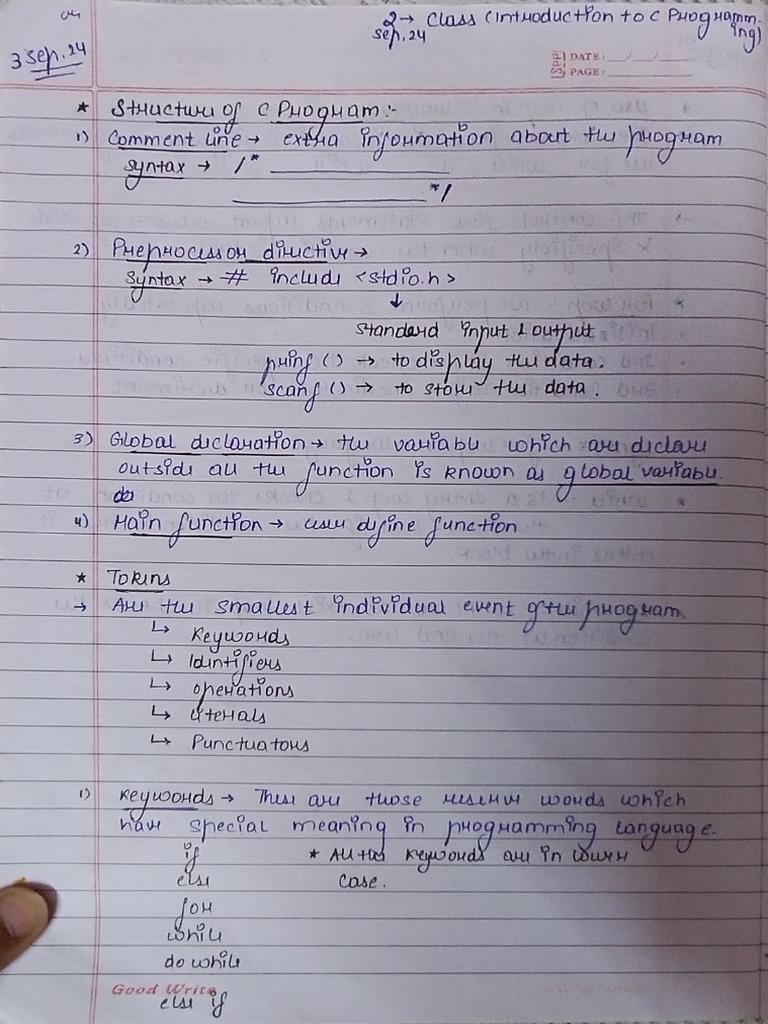 2 → Class (Introduction to C Programm-
ing)
Sep. 24
3 Sep. 24
SPP DATE: __/__/__
PAGE:
* Structure of C Program:-
1) Comment line → extra information about the program
Syntax → /*
*/
2) Preprocessor directive →
Syntax → # include <stdio.h>
↓
Standard input & output
prinf () → to display the data.
scanf () → to store the data.
3) Global declaration → the variable which are declare
outside all the function is known as global variable.
4) Main function → user define function
* Tokens
→ Are the smallest individual event of the program.
↳ Keywords
↳ Identifiers
↳ operations
↳ literals
↳ Punctuators
1) Keywords → These are those reserve words which
have special meaning in programming language.
if * All the keywords are in lower
else case.
for
while
do while
Good Write
else if